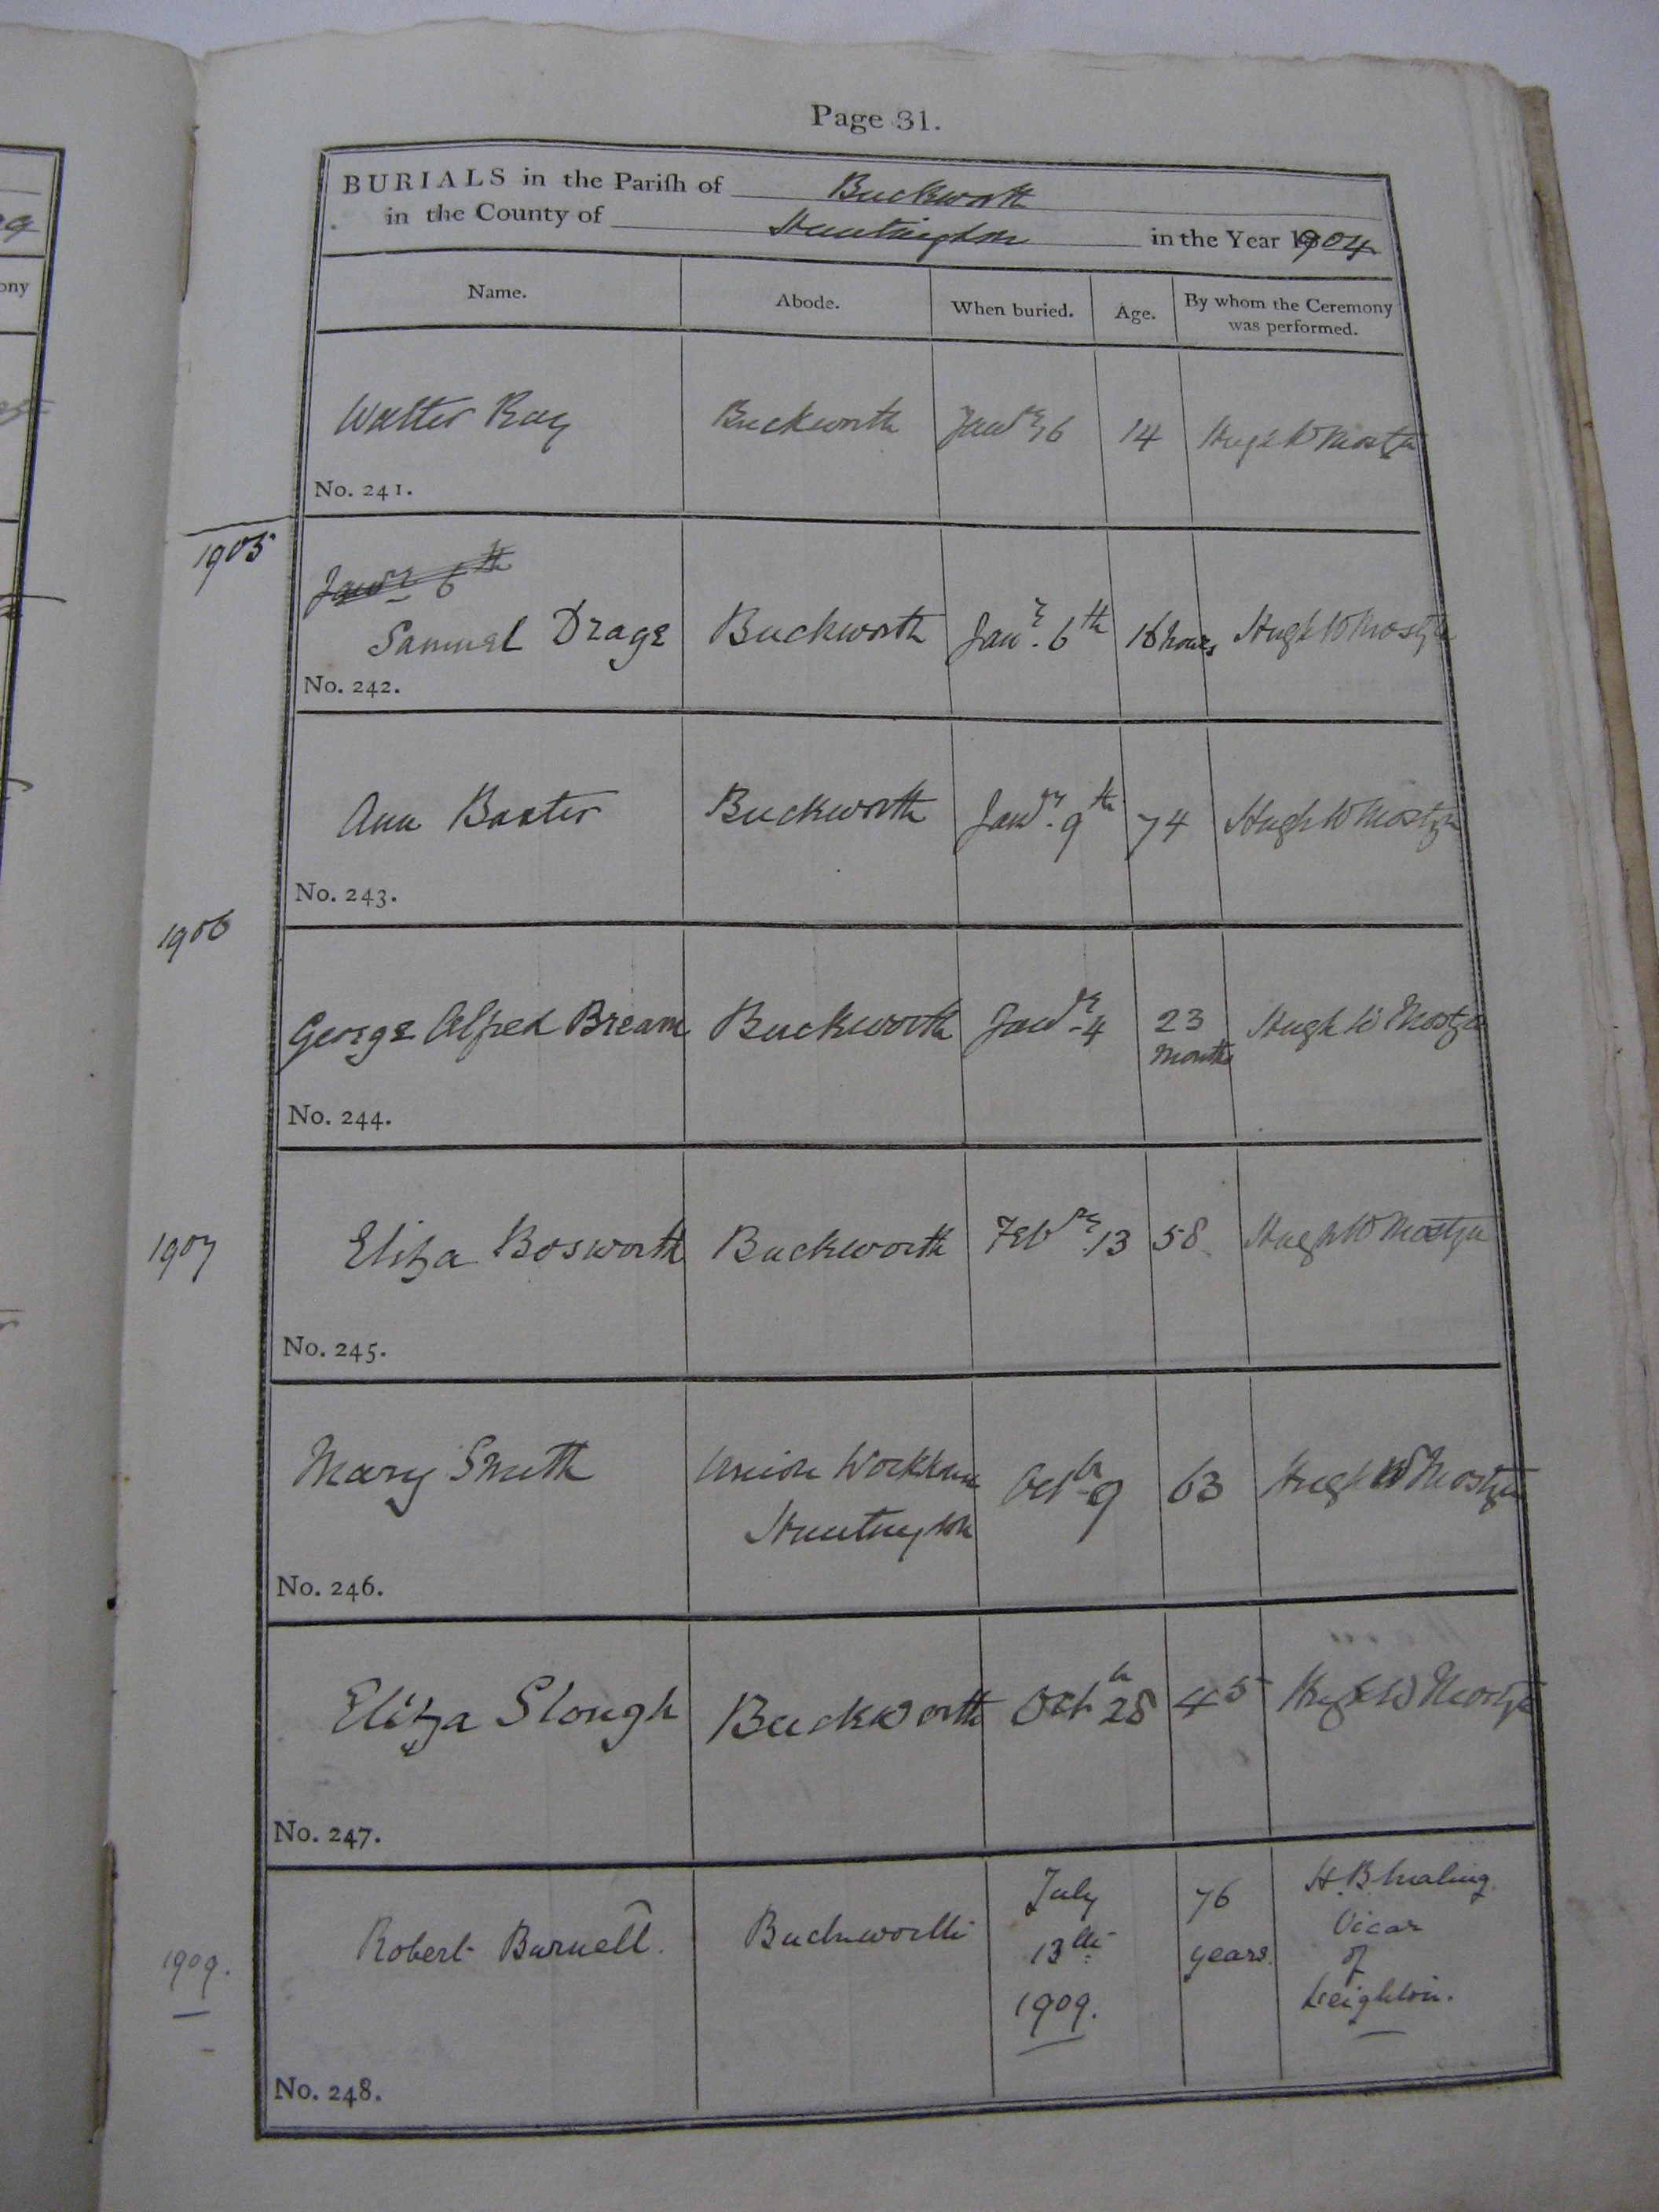 Page 31.
BURIALS in the Parish of Buckworth
in the County of Huntingdon in the Year 1904
Name. Abode. When buried. Age. By whom the Ceremony was performed.
Walter Ray Buckworth Janry 6 14 Hugh W Mostyn
No. 241.
1905
Janry 6th
Samuel Drage Buckworth Janry. 6th 16 hours Hugh W Mostyn
No. 242.
Ann Baxter Buckworth Janry. 9th 74 Hugh W Mostyn
No. 243.
1906
George Alfred Bream Buckworth Janry 4 23 Months Hugh W Mostyn
No. 244.
1907
Eliza Bosworth Buckworth Febry. 13 58 Hugh W Mostyn
No. 245.
Mary Smith Union Workhouse Octbr 9 63 Hugh W Mostyn
Huntingdon
No. 246.
Eliza Slough Buckworth Octbr 28 45 Hugh W Mostyn
No. 247.
1909.
Robert Burnell. Buckworth July 13th 1909. 76 years. H. B. Maling. Vicar of Leighton.
No. 248.